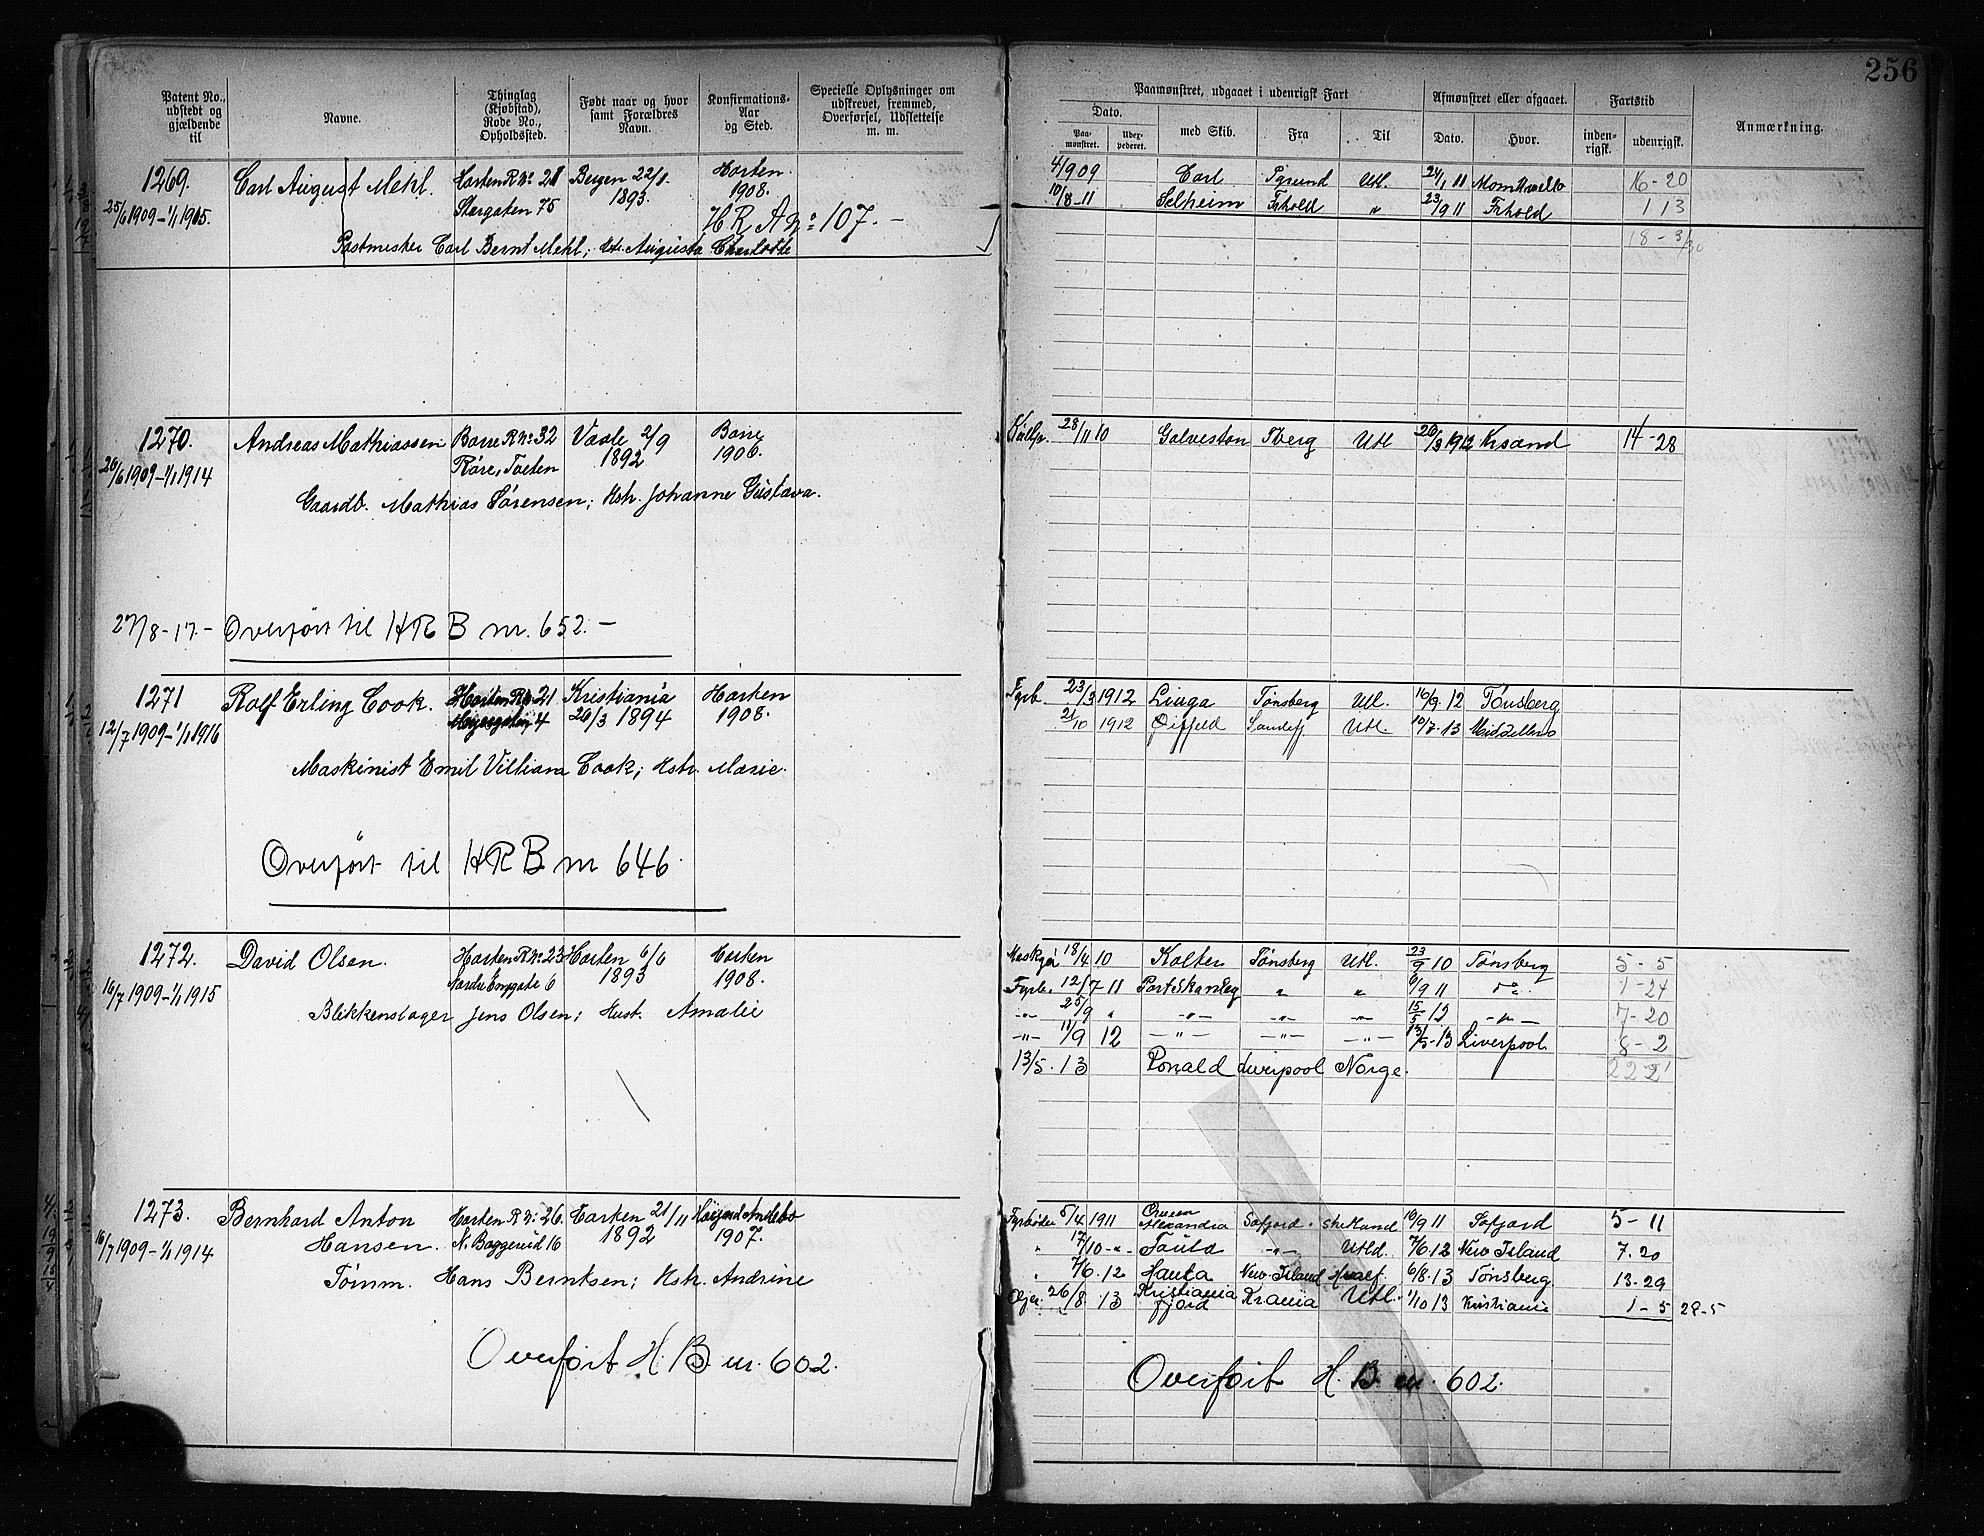 256
Patent No., udstedt og gjældende til
Navne.
Thinglag (Kjøbstad), Rode No., Opholdssted.
Født naar og hvor samt Forældres Navn.
Konfirmations-Aar og Sted.
Specielle Oplysninger om udskrevet, fremmed, Overførsel, Udslettelse m. m.
Paamønstret, udgaaet i udenrigsk Fart
Afmønstret eller afgaaet.
Fartstid
Dato.
Paa-mønstret.
Udex-pederet.
med Skib.
Fra
Til
Dato.
Hvor.
inden-rigsk.
udenrigsk.
Anmærkning.
1269. Carl August Mehl. Horten R No 21 Bergen 22/1. Horten
25/6 1909-1/1 1915. Storgaten 75 1893. 1908.
H R A No 107.-
Postmester Carl Bernt Mehl; Charlotte
4/9 09 Carl Utl. 24/1 11 16-20
10/8-11 Selheim Frhold " 23/9 11 Frhold 1 13
1270. Andreas Mathiassen Borre R No 32 Vaale 2/9 Borre
26/6 1909-1/1 1914 Røre, 1892 1906.
Gaardb. Mathias Sørensen; Hstr. Johanne Gustava.
27/8-17- Overført til HRB nr. 652.-
28/11 10 Galveston Tberg Utl 1912 Krsand 14-28
1271 Rolf Erling Cook. Horten R No 21 Kristiania Horten
12/7 1909-1/1 1916 4 26/3 1894 1908.
Maskinist Emil Villiam Cook; Hstr. Marie.
Overført til HRB nr 646.
Fyrb. 23/3 1912 Linga Tønsberg Utl. 16/9.12 Tønsberg
21/10 1912 Sandefj Utl. 10/7-13 Middelbro
1272. David Olsen. Horten R No 23 Horten 6/6 Horten
16/7 1909-1/1 1915 6 1893 1908.
Blikkenslager Jens Olsen; Hust. Amalie
18/4 10 Tønsberg Utl. 23/9 10 Tønsberg 5-5
Fyrb. 12/7 11 " " 6/9 11 do. 1-24
-"- 25/9 " -"- -"- -"- 15/5 12 -"- 7-20
-"- 11/9 12 -"- -"- -"- 13/5-13 Liverpool 8-2
13/5. 13 Ronald Liverpool Norge. 22 2
1273. Bernhard Anton Horten R No 26. Horten 21/11
16/7 1909-1/1 1914 Hansen. N. Baggerud 16 1892 1907.
Tømm. Hans Berntsen; Hstr. Andrine
Overført H. B. nr. 602.
Fyrbøder 5/4 1911 Alexandra 10/9 11 5-11
" 17/10 -"- -"- Utld. 7/6.12 New Island 7.20
" 7/6.12 Hauka New Island 6/8.13 Tønsberg 13-29
26/8 13 Kristianiafjord Krania Utl. 1/10 13 Kristiania 1-5 28-5
Overført H. B. nr. 602.